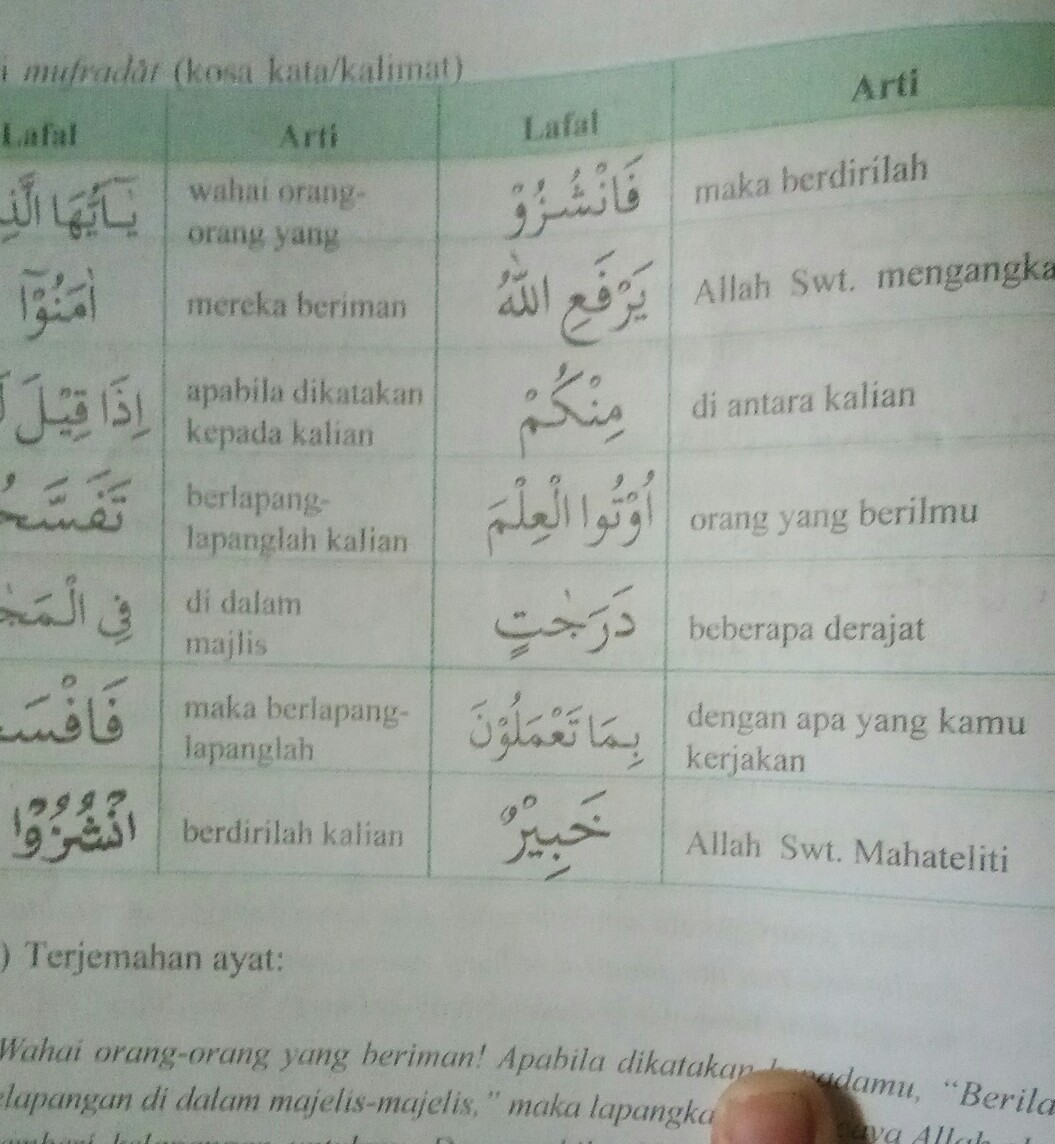 i mufradāt (kosa kata/kalimat)
Lafal Arti Lafal Arti
يٰٓاَيُّهَا wahai orang-
orang yang
فَانْشُزُوْ maka berdirilah
اٰمَنُوْٓا mereka beriman
يَرْفَعِ اللّٰهُ Allah Swt. mengangka
اِذَا قِيْلَ apabila dikatakan
kepada kalian
مِنْكُمْ di antara kalian
berlapang-
lapanglah kalian
اُوْتُوا الْعِلْمَ orang yang berilmu
فِى di dalam
majlis
دَرَجٰتٍ beberapa derajat
maka berlapang-
lapanglah
بِمَا تَعْمَلُوْنَ dengan apa yang kamu
kerjakan
انْشُزُوْا berdirilah kalian
خَبِيْرٌ Allah Swt. Mahateliti
) Terjemahan ayat:
Wahai orang-orang yang beriman! Apabila dikatakan damu, “Berila
elapangan di dalam majelis-majelis,” maka lapangka
ya Allah